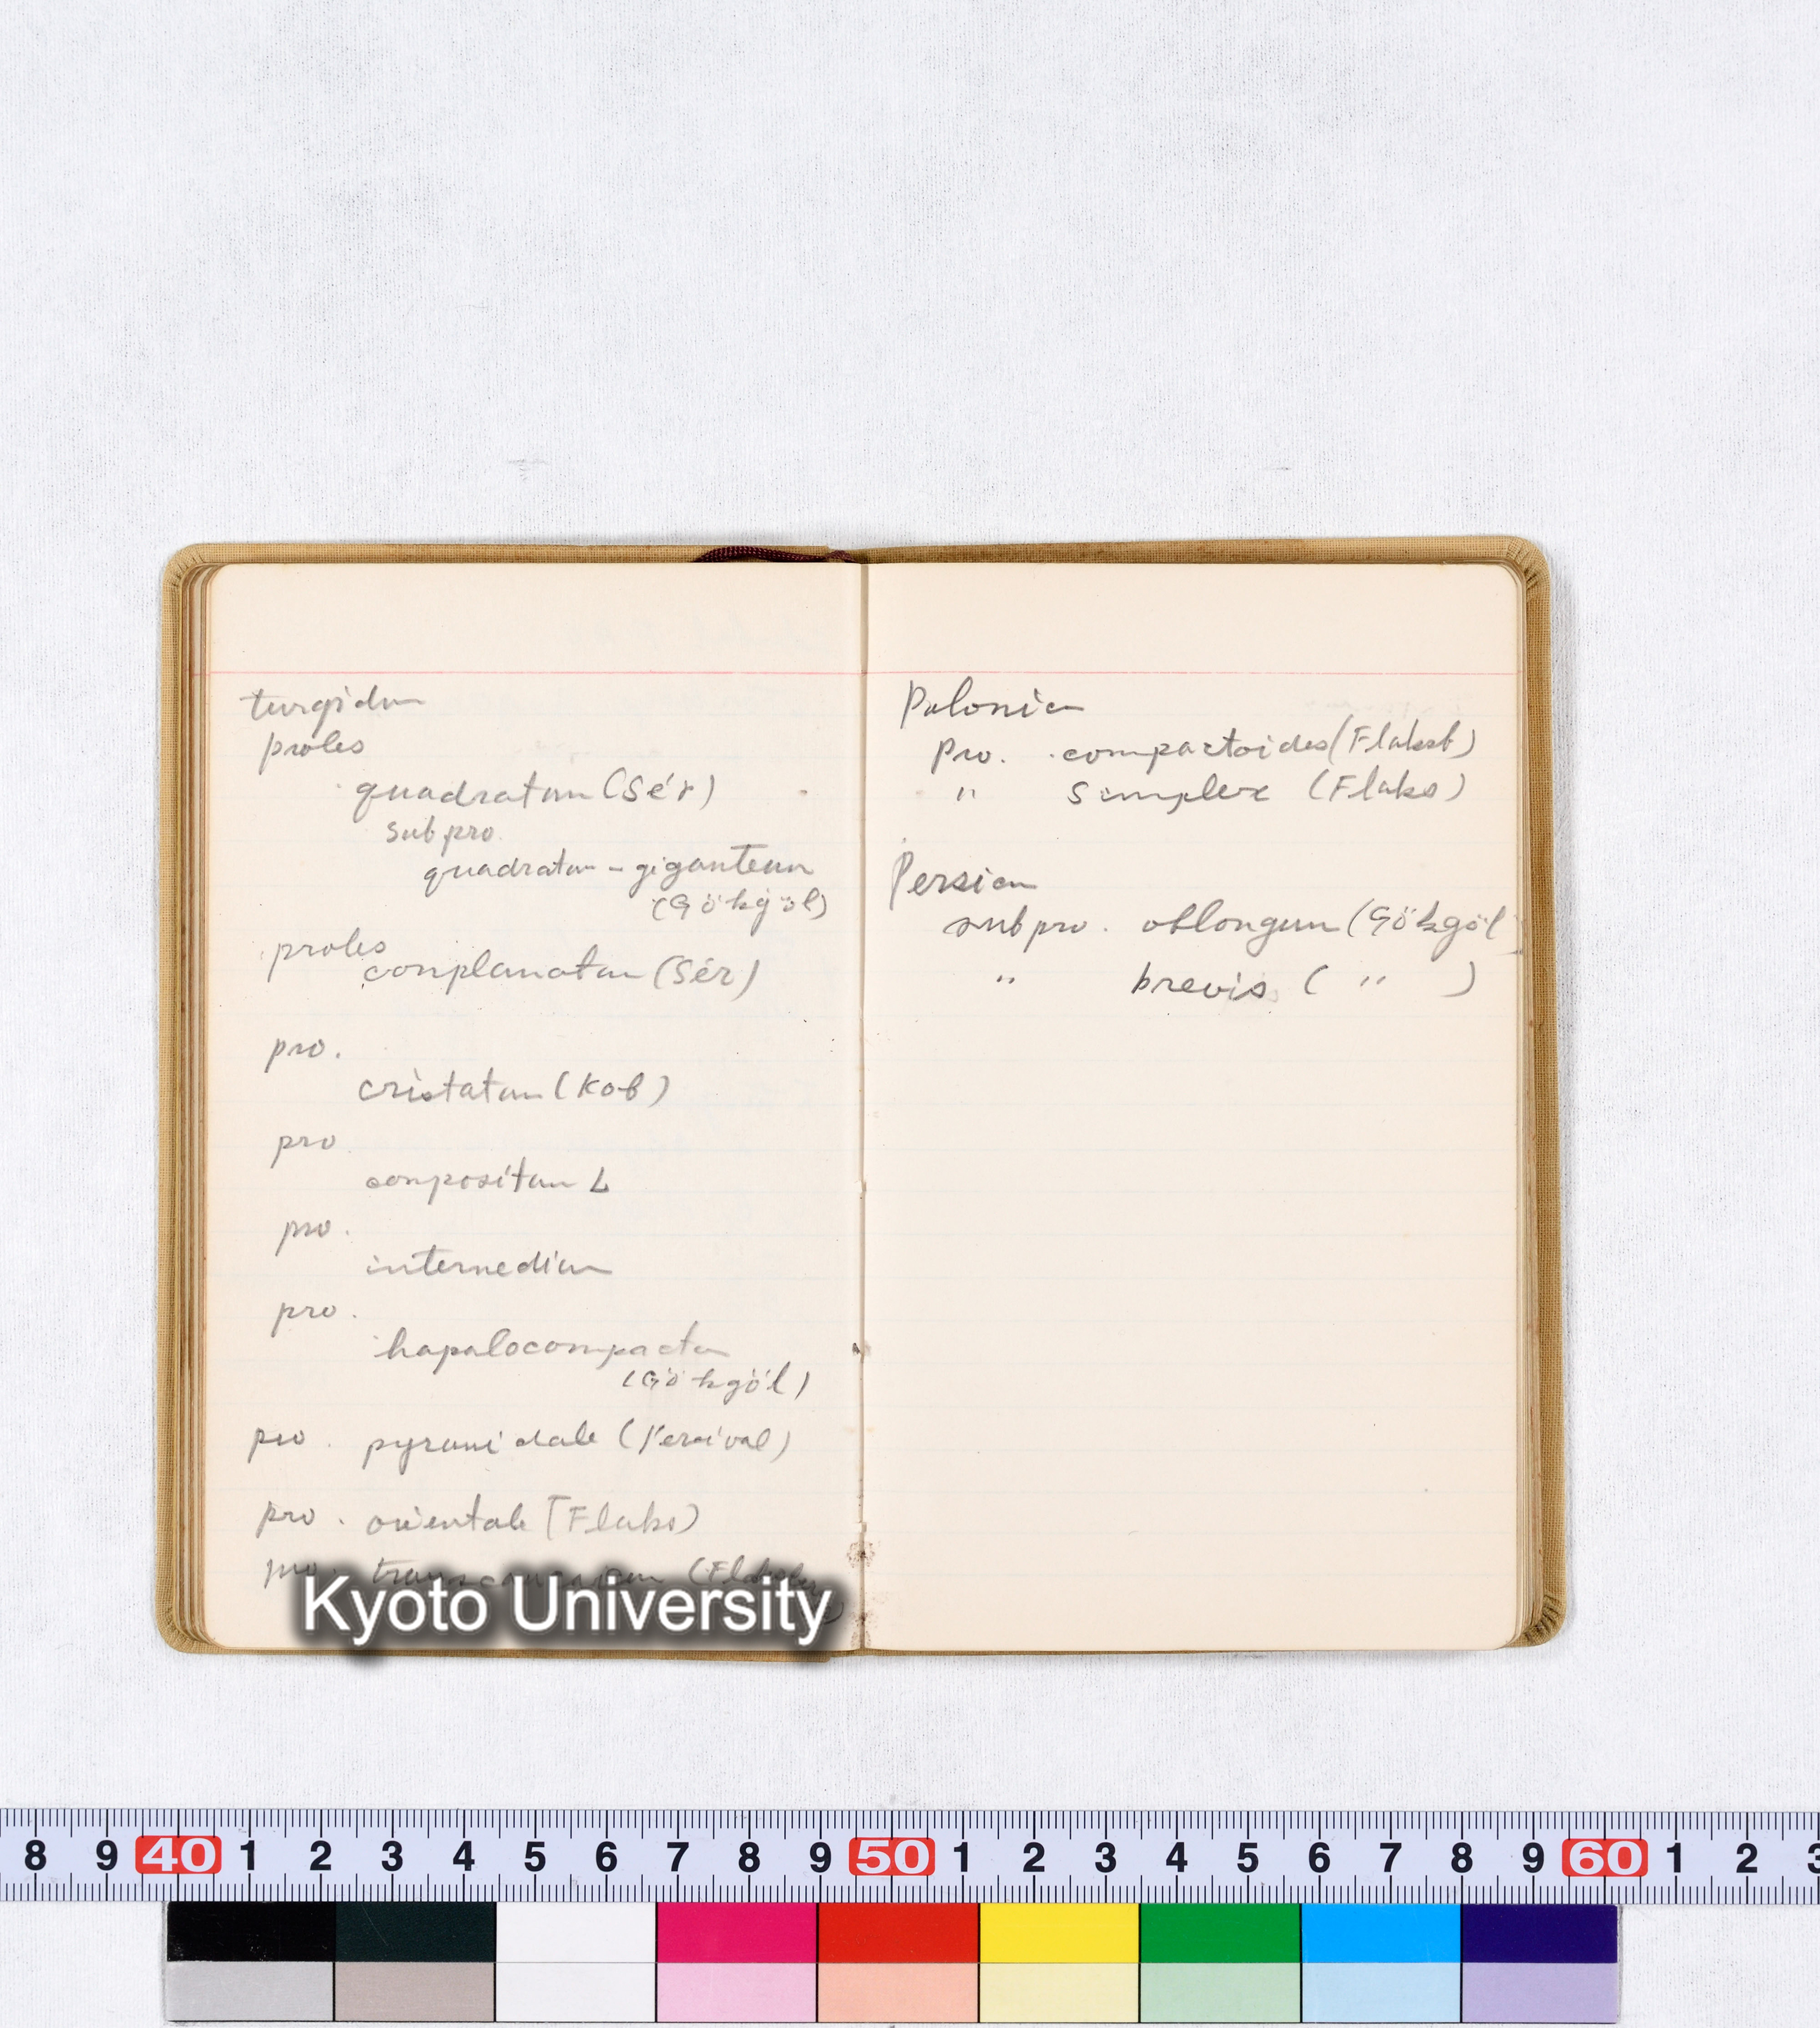 turgidum
proles
quadratum (Sér)
subpro.
quadratum - giganteum
(Gökgöl)
proles
complanatum (Sér)
pro.
cristatum (Kob)
pro
compositum L
pro.
intermedium
pro.
hapalocompactum
(Gökgöl)
pro. pyramidale (Percival)
pro. orientale (Flaks)
pro. (Flaksber
Polonicum
Pro. compactoides (Flaksb)
" simplex (Flaks)
Persicum
subpro. oblongum (Gökgöl)
" brevis ( " )
Kyoto University
8 9 40 1 2 3 4 5 6 7 8 9 50 1 2 3 4 5 6 7 8 9 60 1 2 3